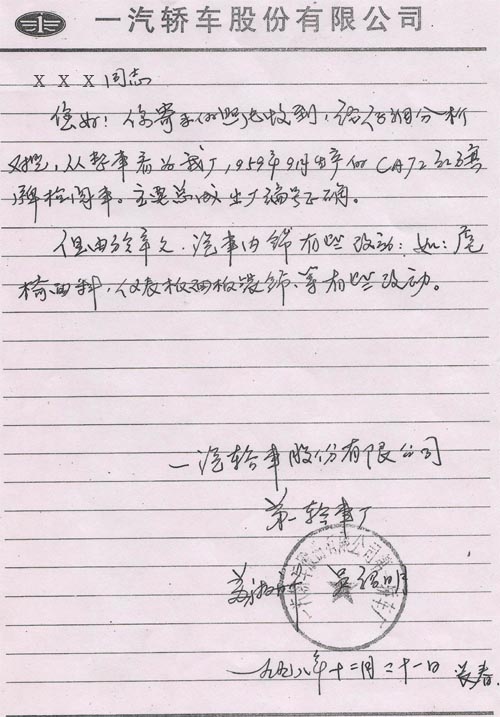 一汽轿车股份有限公司
X X X 同志
您好！你寄来的照片收到，经仔细分析
对比，从整车看为我厂1959年9月生产的CA72红旗
牌检阅车。主要总成出厂编号正确。
但由于年久，汽车内饰有些改动：如：座
椅面料，仪表板面板装饰、等有些改动。
一汽轿车股份有限公司
第一轿车厂
吴绍明
一九九八年十二月二十一日 长春.